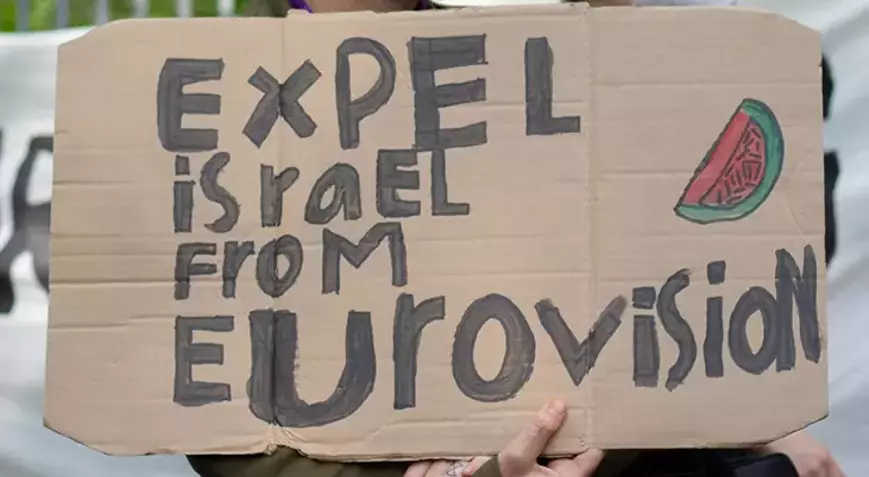 EXPEL
isrаEL
FroM
EUrovisioN